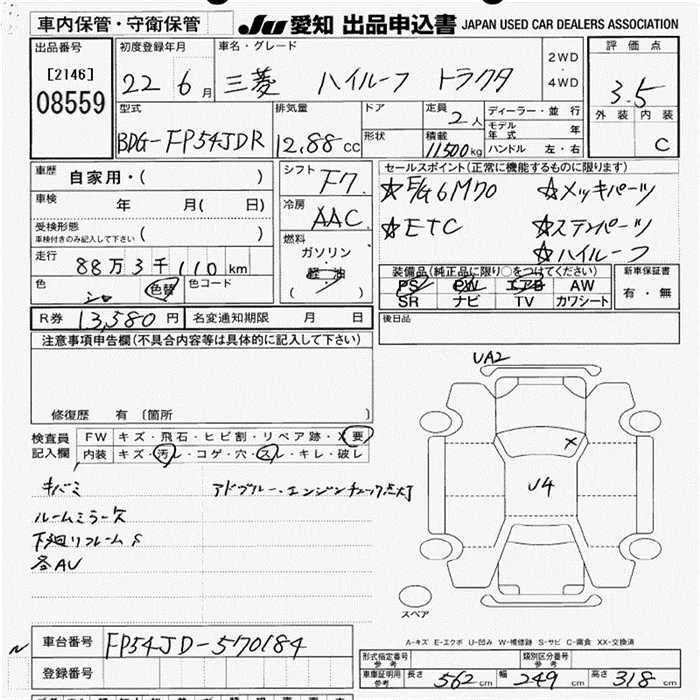 車内保管・守衛保管 JU 愛知 出品申込書 JAPAN USED CAR DEALERS ASSOCIATION
出品番号 [2146] 08559
初度登録年月 22 6月
車名・グレード 三菱 ハイルーフ トラクタ
2WD・4WD
評価点 3.5
外装 内装 C
型式 BDG-FP54JDR
排気量 12.88cc
ドア
形状
定員 2人
積載 11500kg
ディーラー・並行
モデル年式 年
ハンドル 左・右
車歴 自家用・( )
車検 年 月( 日)
受検形態 車検付きのみ記入して下さい ( )
走行 88万3千110km
色 シロ 色替 色コード
シフト F7
冷房 AAC
燃料 ガソリン・軽油 ( )
セールスポイント(正常に機能するものに限ります)
☆E/G6M70 ☆メッキパーツ
☆ETC ☆ステンパーツ
☆ハイルーフ
装備品(純正品に限り○をつけてください)
PS PW エアB AW
SR ナビ TV カワシート
新車保証書 有・無
R券 13,580円 名変通知期限 月 日
後日品
注意事項申告欄(不具合内容等は具体的に記入して下さい)
修復歴 有〔箇所 〕
検査員記入欄 FW キズ・飛石・ヒビ割・リペア跡・X要
内装 キズ・汚レ・コゲ・穴・スレ・キレ・破レ
キバミ アドブルー・エンジンチェック点灯
ルームミラー欠
下廻リフレームS
各AU
UA2
X
U4
スペア
A-キズ E-エクボ U-凹み W-補修跡 S-サビ C-腐食 XX-交換済
車台番号 FP54JD-570184
登録番号
形式指定番号 参考 類別区分番号 参考
車庫証明用 参考 長さ 562cm 幅 249cm 高さ 318cm